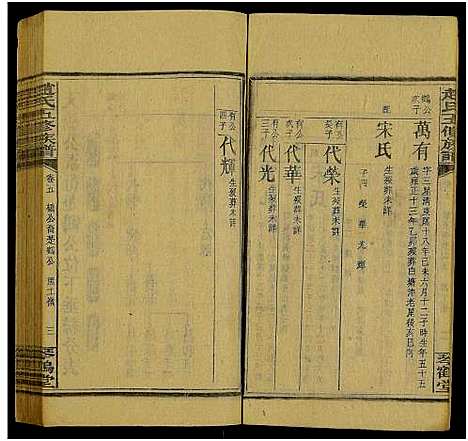 趙氏五修族譜
鶴公次子
萬有
字三星清康熙十八年己未六月十二子時生年五十五
歲雍正十三年乙卯歿葬白塘沖老屋後亥巳向
配
宋氏
生歿葬未詳
子四 榮 華 光 輝
有公長子
代榮
生歿葬未詳
有公次子
代華
生歿葬未詳
有公三子
代光
生歿葬未詳
琴鶴堂
有公四子
代輝
生歿葬未詳
趙氏五修族譜
卷五
三
琴鶴堂